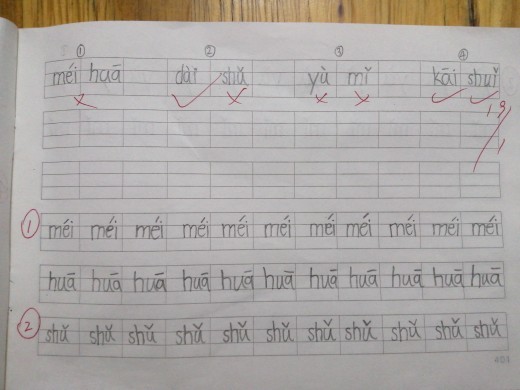 ① ② ③ ④
méi huā dài shǔ yù mǐ kāi shuǐ
① méi méi méi méi méi méi méi méi méi méi méi
huā huā huā huā huā huā huā huā huā huā huā
② shǔ shǔ shǔ shǔ shǔ shǔ shǔ shǔ shǔ shǔ shǔ